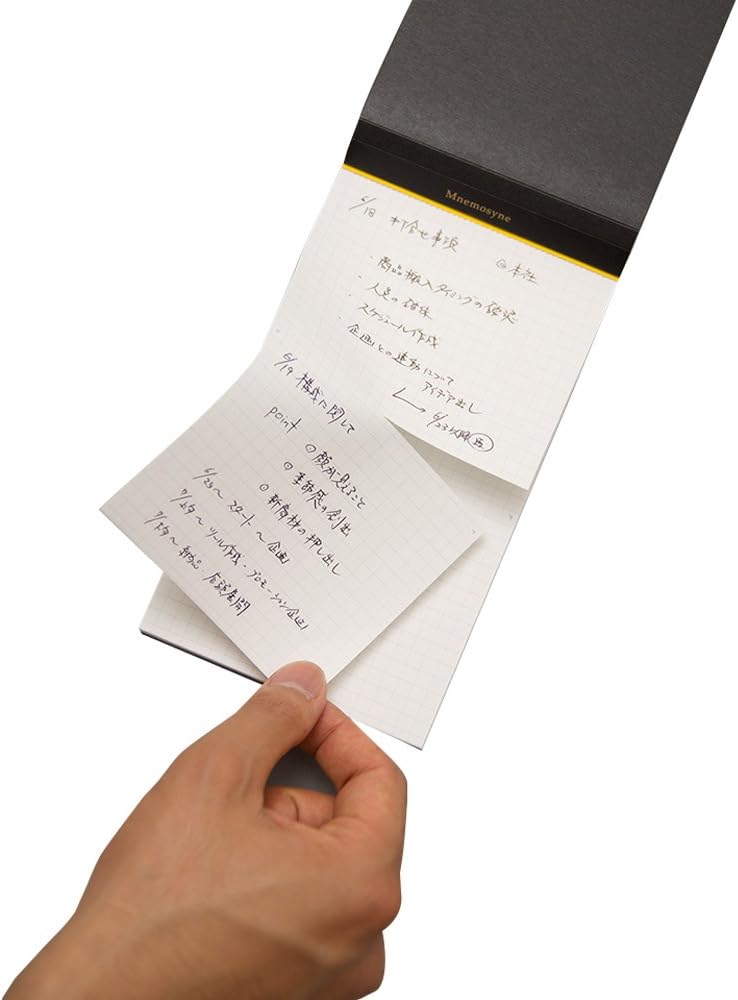 Mnemosyne
6/18 打合せ事項 @本社
・商品搬入タイミングの確実
・人員の確保
・スケジュール作成
・企画との連動について
アイデア出し
↳ 6/23以降
6/19 構成に関して
point
◎顔が見えること
◎季節感の創出
◎新商材の押し出し
6/23〜 スタート 〜企画
7/上旬〜 ツール作成・プロモーション企画
7/下旬〜 納品・店頭展開